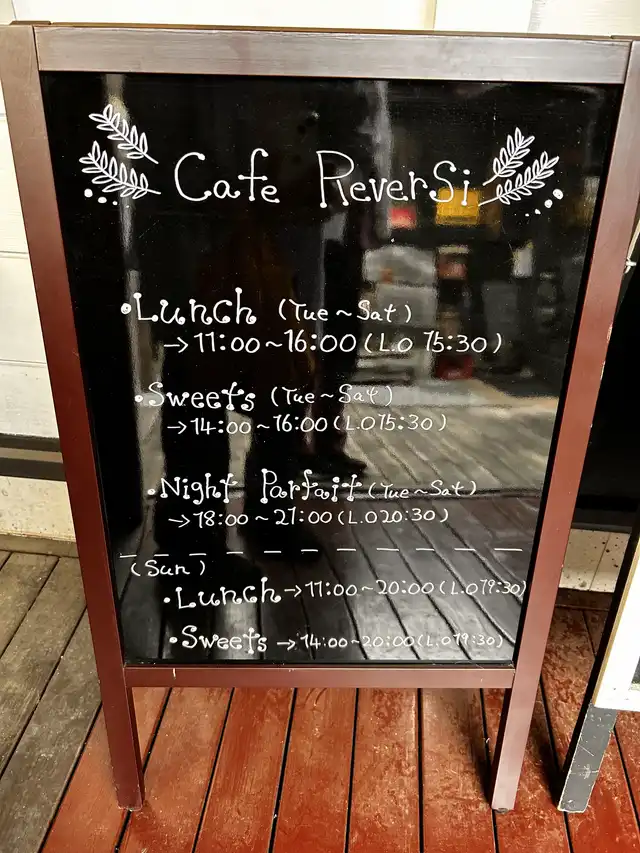 Cafe Reversi
・Lunch (Tue~Sat)
→11:00~16:00(L.O 15:30)
・Sweets (Tue~Sat)
→14:00~16:00(L.O15:30)
・Night Parfait(Tue~Sat)
→18:00~21:00(L.O20:30)
(Sun)
・Lunch→11:00~20:00(L.O19:30)
・Sweets→14:00~20:00(L.O19:30)